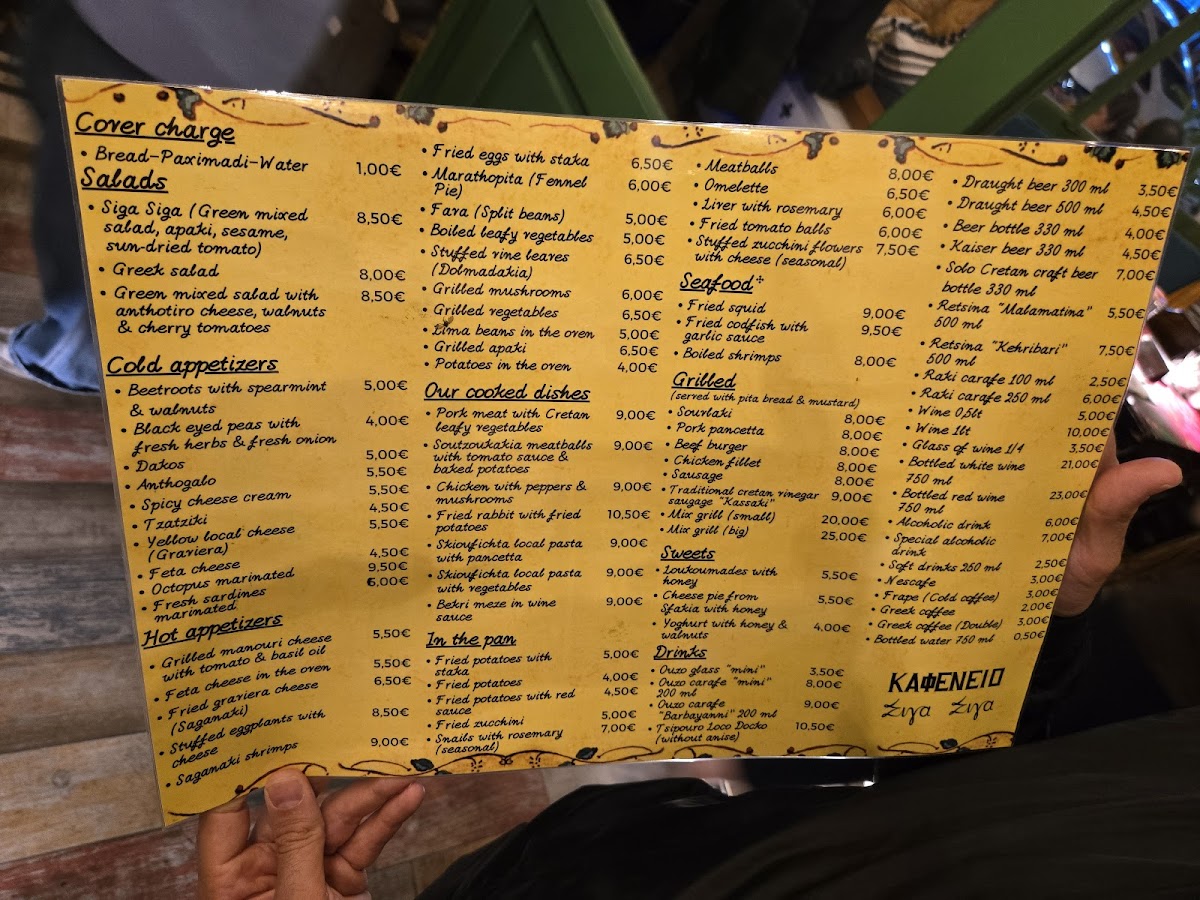 Cover charge
• Bread-Paximadi-Water 1,00€
Salads
• Siga Siga (Green mixed 8,50€
salad, apaki, sesame,
sun-dried tomato)
• Greek salad 8,00€
• Green mixed salad with 8,50€
anthotiro cheese, walnuts
& cherry tomatoes
Cold appetizers
• Beetroots with spearmint 5,00€
& walnuts
• Black eyed peas with 4,00€
fresh herbs & fresh onion
• Dakos 5,00€
• Anthogalo 5,50€
• Spicy cheese cream 5,50€
• Tzatziki 4,50€
• Yellow local cheese 5,50€
(Graviera)
• Feta cheese 4,50€
• Octopus marinated 9,50€
• Fresh sardines 6,00€
marinated
Hot appetizers
• Grilled manouri cheese 5,50€
with tomato & basil oil
• Feta cheese in the oven 5,50€
• Fried graviera cheese 6,50€
(Saganaki)
• Stuffed eggplants with 8,50€
cheese
• Saganaki shrimps 9,00€
• Fried eggs with staka 6,50€
• Marathopita (Fennel 6,00€
Pie)
• Fava (Split beans) 5,00€
• Boiled leafy vegetables 5,00€
• Stuffed vine leaves 6,50€
(Dolmadakia)
• Grilled mushrooms 6,00€
• Grilled vegetables 6,50€
• Lima beans in the oven 5,00€
• Grilled apaki 6,50€
• Potatoes in the oven 4,00€
Our cooked dishes
• Pork meat with Cretan 9,00€
leafy vegetables
• Soutzoukakia meatballs 9,00€
with tomato sauce &
baked potatoes
• Chicken with peppers & 9,00€
mushrooms
• Fried rabbit with fried 10,50€
potatoes
• Skioufichta local pasta 9,00€
with pancetta
• Skioufichta local pasta 9,00€
with vegetables
• Bekri meze in wine 9,00€
sauce
In the pan
• Fried potatoes with 5,00€
staka
• Fried potatoes 4,00€
• Fried potatoes with red 4,50€
sauce
• Fried zucchini 5,00€
• Snails with rosemary 7,00€
(seasonal)
• Meatballs 8,00€
• Omelette 6,50€
• Liver with rosemary 6,00€
• Fried tomato balls 6,00€
• Stuffed zucchini flowers 7,50€
with cheese (seasonal)
Seafood*
• Fried squid 9,00€
• Fried codfish with 9,50€
garlic sauce
• Boiled shrimps 8,00€
Grilled
(served with pita bread & mustard)
• Souvlaki 8,00€
• Pork pancetta 8,00€
• Beef burger 8,00€
• Chicken fillet 8,00€
• Sausage 8,00€
• Traditional cretan vinegar 9,00€
saugage "Kassaki"
• Mix grill (small) 20,00€
• Mix grill (big) 25,00€
Sweets
• Loukoumades with 5,50€
honey
• Cheese pie from 5,50€
Sfakia with honey
• Yoghurt with honey & 4,00€
walnuts
Drinks
• Ouzo glass "mini" 3,50€
• Ouzo carafe "mini" 8,00€
200 ml
• Ouzo carafe 9,00€
"Barbayanni" 200 ml
• Tsipouro Loco Docko 10,50€
(without anise)
• Draught beer 300 ml 3,50€
• Draught beer 500 ml 4,50€
• Beer bottle 330 ml 4,00€
• Kaiser beer 330 ml 4,50€
• Solo Cretan craft beer 7,00€
bottle 330 ml
• Retsina "Malamatina" 5,50€
500 ml
• Retsina "Kehribari" 7,50€
500 ml
• Raki carafe 100 ml 2,50€
• Raki carafe 250 ml 6,00€
• Wine 0,5lt 5,00€
• Wine 1lt 10,00€
• Glass of wine 1/4 3,50€
• Bottled white wine 21,00€
750 ml
• Bottled red wine 23,00€
750 ml
• Alcoholic drink 6,00€
• Special alcoholic 7,00€
drink
• Soft drinks 250 ml 2,50€
• Nescafe 3,00€
• Frape (Cold coffee) 3,00€
• Greek coffee 2,00€
• Greek coffee (Double) 3,00€
• Bottled water 750 ml 0,50€
ΚΑΦΕΝΕΙΟ
Σιγα Σιγα